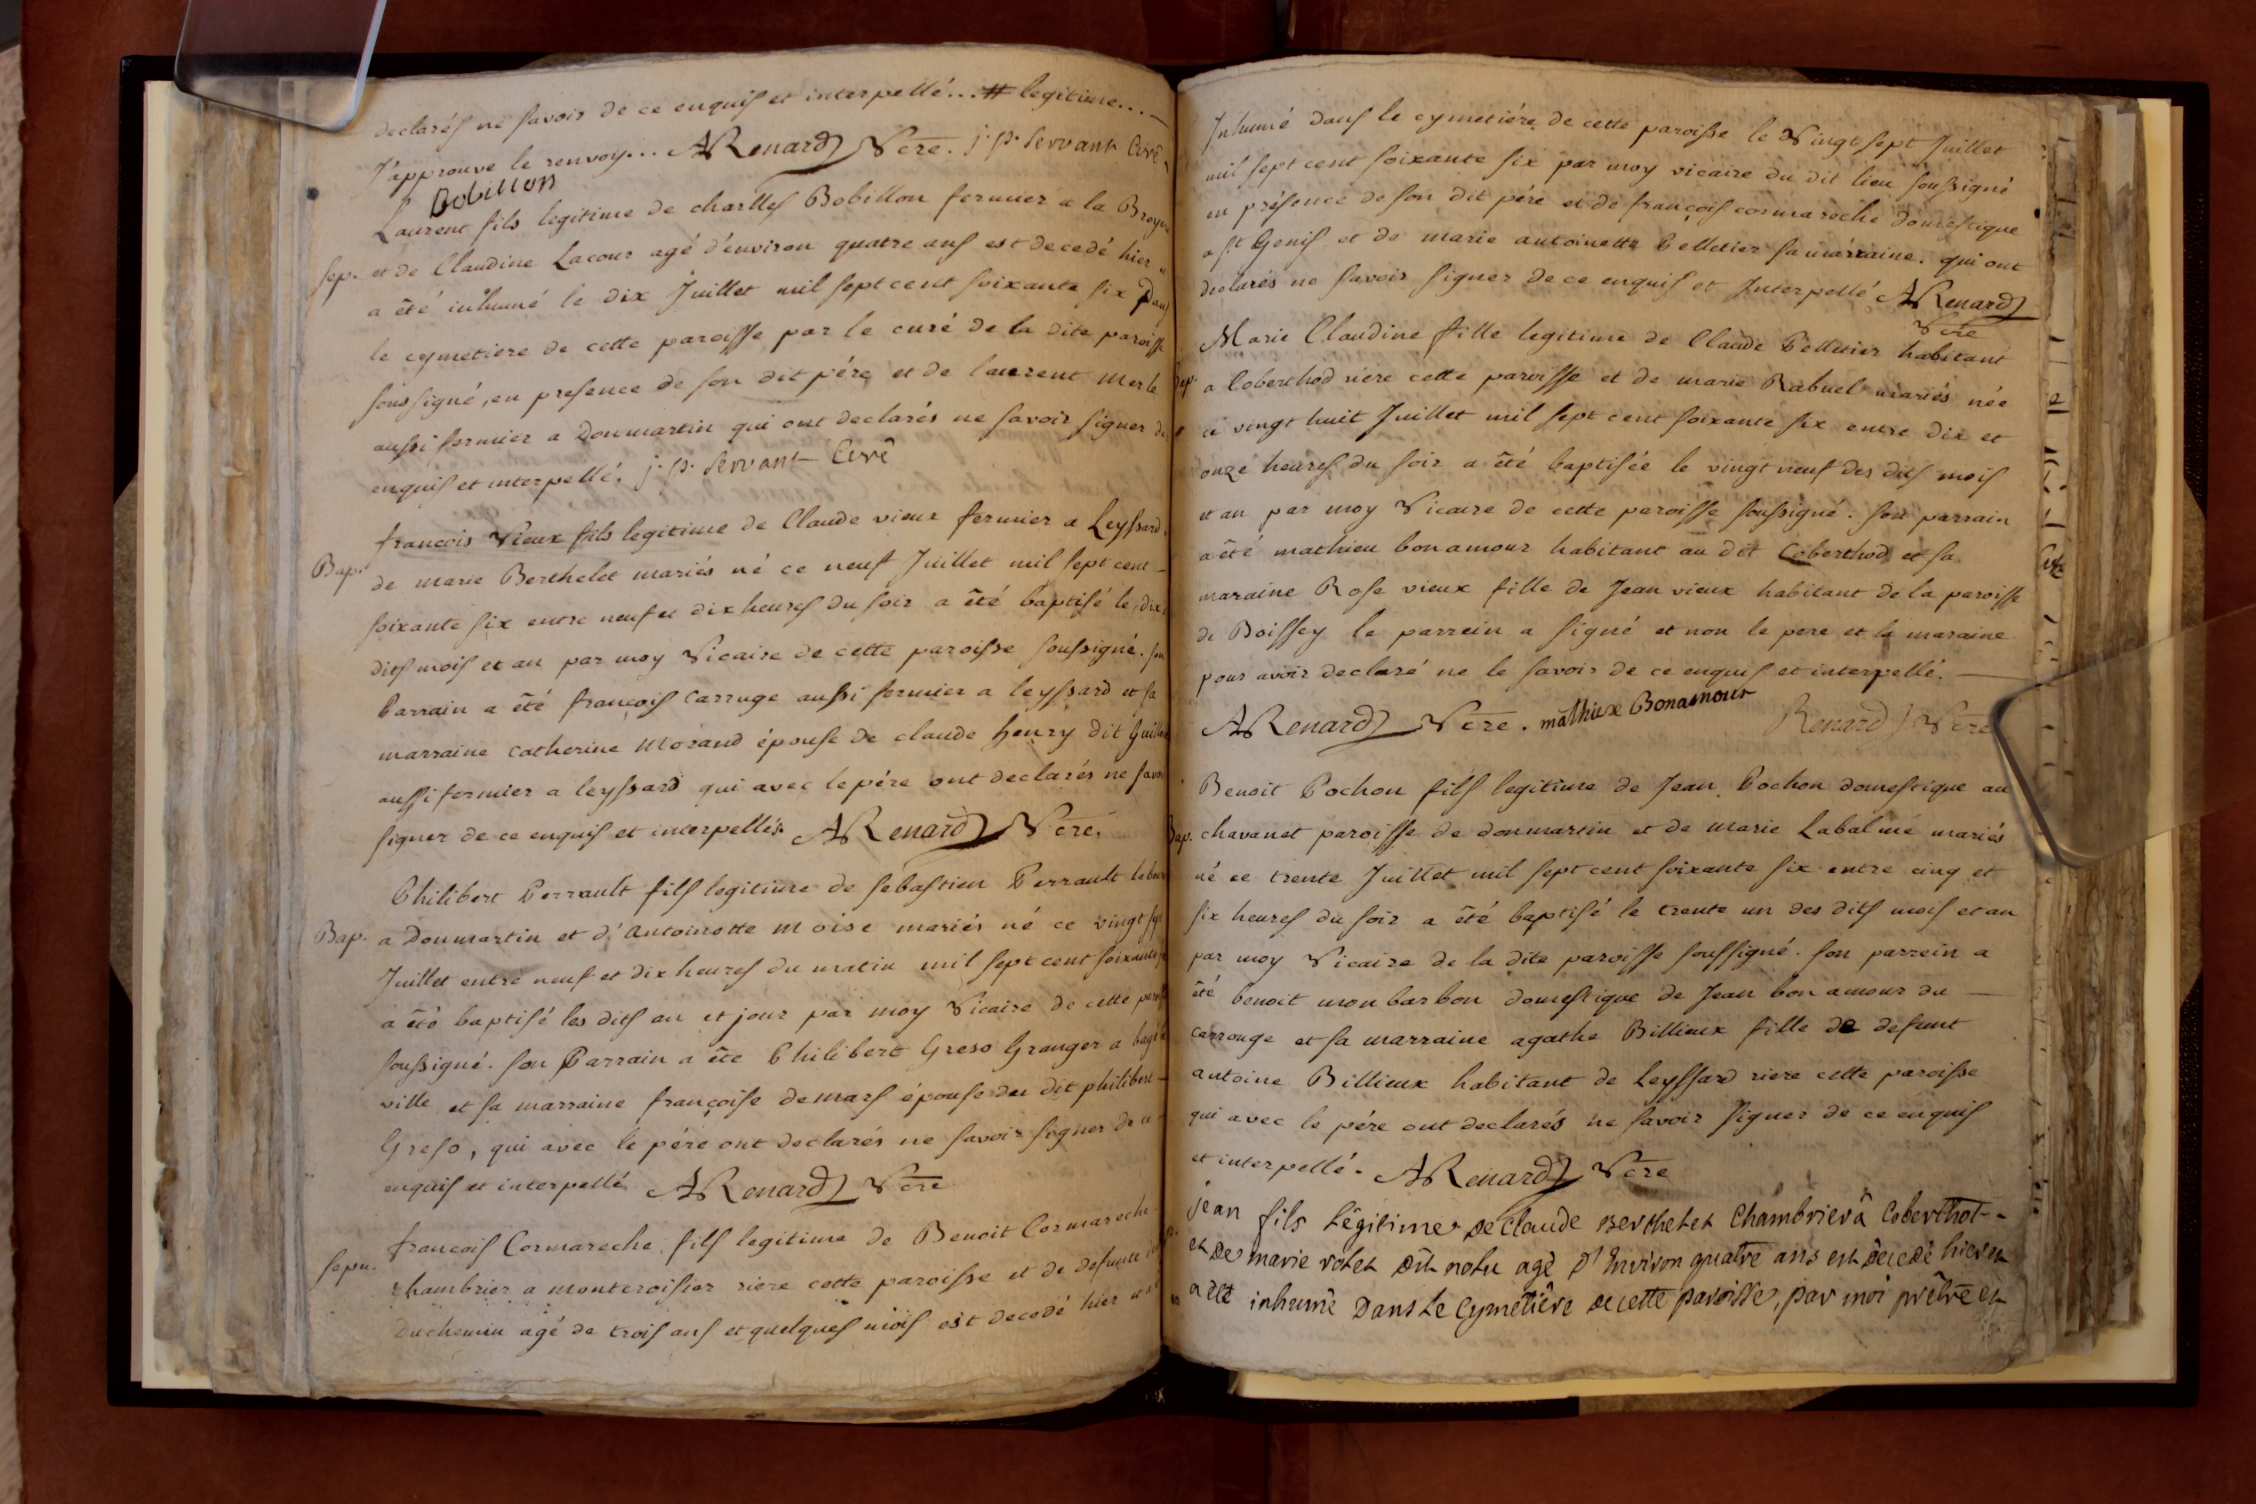 declarés ne savoir de ce enquis et interpellé... # legitime...
J'approuve le renvoy... ARenard Vcre. j. p. Servant Curé
Bobillon
Laurent fils legitime de charles Bobillon fermier a la
Sep. et de Claudine Lacour agé d'environ quatre ans est decedé hier
a été inhumé le dix Juillet mil sept cent soixante six Dans
le cymetiere de cette paroisse par le curé de la dite paroisse
soussigné, en presence de son dit pére et de laurent merle
aussi fermier a Donmartin qui ont declarés ne savoir signer de
enquis et interpellé. j. p. Servant Curé
francois Vieux fils legitime de Claude vieux fermier a Leyssard
Bap. de marie Berthelet mariés né ce neuf Juillet mil sept cent
soixante six entre neuf et dix heures du soir a été baptisé le dix
dits mois et an par moy Vicaire de cette paroisse soussigné. son
Parrain a été françois Carruge aussi fermier a leyssard et sa
marraine catherine Morand épouse de claude henry dit
aussi fermier a leyssard qui avec le pére ont declarés ne savoir
signer de ce enquis et interpellés ARenard Vcre.
Philibert Perrault fils legitime de sebastien Perrault
Bap. a Donmartin et d'antoinette Moise mariés né ce vingt
Juillet entre neuf et dix heures du matin mil sept cent soixante
a été baptisé les dits an et jour par moy Vicaire de cette
soussigné. son Parrain a été Philibert Greso Granger a bagé
ville et sa marraine françoise demars épouse du dit philibert
Greso, qui avec le pére ont declarés ne savoir signer de ce
enquis et interpellé ARenard Vcre
francois Cormareche fils legitime de Benoit Cormareche
Sepu. chambrier a montcroissier riere cette paroisse et de defunte
Duchemin agé de trois ans et quelques mois est decedé hier
Inhumé dans le cymetiére de cette paroisse le Vingt sept Juillet
mil sept cent soixante six par moy vicaire du dit lieu soussigné
en présence de son dit pére et de françois cormareche domestique
a st Genis et de marie antoinette Pelletier sa marraine. qui ont
declarés ne savoir signer de ce enquis et Interpellé ARenard
Vcre
Marie Claudine fille legitime de Claude Pelletier habitant
Bap. a Coberthod riere cette paroisse et de marie Rabuel mariés née
ce vingt huit Juillet mil sept cent soixante six entre dix et
onze heures du soir a été baptisée le vingt neuf des dits mois
et an par moy Vicaire de cette paroisse soussigné. son parrain
a été mathieu bonamour habitant au dit Coberthod et sa
maraine Rose vieux fille de Jean vieux habitant de la paroisse
de Boissey le parrein a signé et non le pere et la maraine
pour avoir declaré ne le savoir de ce enquis et interpellé.
ARenard Vcre. mathieu Bonamour Renard Vcre
Benoit Pochon fils legitime de Jean Pochon domestique au
Bap. chavanet paroisse de donmartin et de marie Labalme mariés
né ce trente Juillet mil sept cent soixante six entre cinq et
six heures du soir a été baptisé le trente un des dits mois et an
par moy Vicaire de la dite paroisse soussigné. son parrein a
été benoit monbarbon domestique de Jean bonamour du
carrouge et sa marraine agathe Billieux fille de defunt
antoine Billieux habitant de Leyssard riere cette paroisse
qui avec le pére ont declarés ne savoir signer de ce enquis
et interpellé. ARenard Vcre
jean fils légitime de claude Berthelet Chambrier à Coberthot
et de marie rolet dit nolu agé d'Environ quatre ans est décédé hier et
a été inhumé dans le cymetiére de cette paroisse, par moi prêtre et